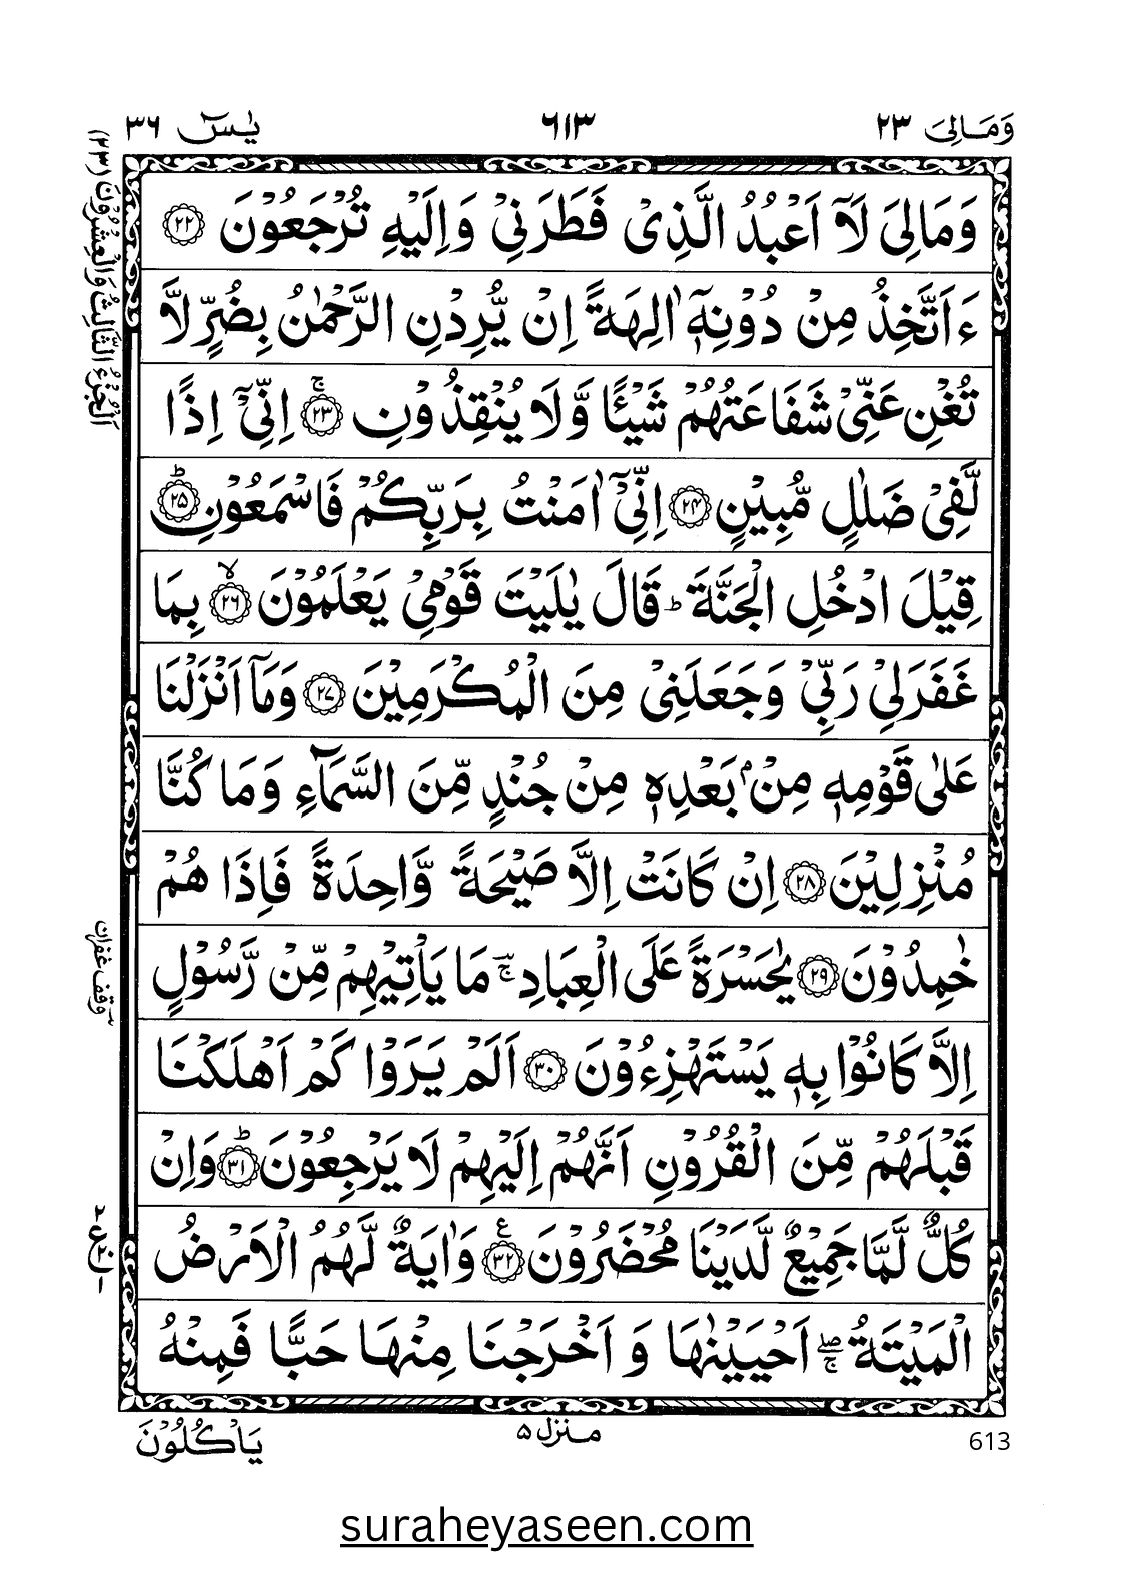 وَمَالِیَ ۲۳
۶۱۳
یٰسٓ ۳۶
اَلْجُزْءُ الثَّالِثُ وَالْعِشْرُوْنَ (۲۳)
وَمَالِیَ لَاۤ اَعْبُدُ الَّذِیْ فَطَرَنِیْ وَاِلَیْهِ تُرْجَعُوْنَ ۝۲۲
ءَاَتَّخِذُ مِنْ دُوْنِهٖۤ اٰلِهَةً اِنْ یُّرِدْنِ الرَّحْمٰنُ بِضُرٍّ لَّا
تُغْنِ عَنِّیْ شَفَاعَتُهُمْ شَیْـًٔا وَّلَا یُنْقِذُوْنِ ۝۲۳ۚ اِنِّیْۤ اِذًا
لَّفِیْ ضَلٰلٍ مُّبِیْنٍ ۝۲۴ اِنِّیْۤ اٰمَنْتُ بِرَبِّكُمْ فَاسْمَعُوْنِ ۝۲۵ؕ
قِیْلَ ادْخُلِ الْجَنَّةَ ؕ قَالَ یٰلَیْتَ قَوْمِیْ یَعْلَمُوْنَ ۝۲۶ۙ بِمَا
غَفَرَلِیْ رَبِّیْ وَجَعَلَنِیْ مِنَ الْمُكْرَمِیْنَ ۝۲۷ وَمَاۤ اَنْزَلْنَا
عَلٰی قَوْمِهٖ مِنْۢ بَعْدِهٖ مِنْ جُنْدٍ مِّنَ السَّمَآءِ وَمَا كُنَّا
مُنْزِلِیْنَ ۝۲۸ اِنْ كَانَتْ اِلَّا صَیْحَةً وَّاحِدَةً فَاِذَا هُمْ
خٰمِدُوْنَ ۝۲۹ یٰحَسْرَةً عَلَی الْعِبَادِ ۣۚ مَا یَاْتِیْهِمْ مِّنْ رَّسُوْلٍ
وقف غفران
اِلَّا كَانُوْا بِهٖ یَسْتَهْزِءُوْنَ ۝۳۰ اَلَمْ یَرَوْا كَمْ اَهْلَكْنَا
قَبْلَهُمْ مِّنَ الْقُرُوْنِ اَنَّهُمْ اِلَیْهِمْ لَا یَرْجِعُوْنَ ۝۳۱ؕ وَاِنْ
كُلٌّ لَّمَّا جَمِیْعٌ لَّدَیْنَا مُحْضَرُوْنَ ۝۳۲ع وَاٰیَةٌ لَّهُمُ الْاَرْضُ
الْمَیْتَةُ ۖۚ اَحْیَیْنٰهَا وَ اَخْرَجْنَا مِنْهَا حَبًّا فَمِنْهُ
613
منزل ۵
یَاْكُلُوْنَ
suraheyaseen.com